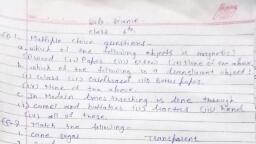 Sub- Science
Class - 6th
Q.1. Multiple choice questions-
a. which of the following objects is magnetic?
(i) wood (ii) Paper (iii) screw (iv) None of the above
which of the following is a translucent object?
(i) Glass (ii) Cardboard (iii) Butter paper
(iv) None of the above.
In Modern times threshing is done through
(i) camel and buffaloes (ii) tractors (iii) Hand
(iv) all of these.
Q.2. Match the following-
1. cane sugar Transparent